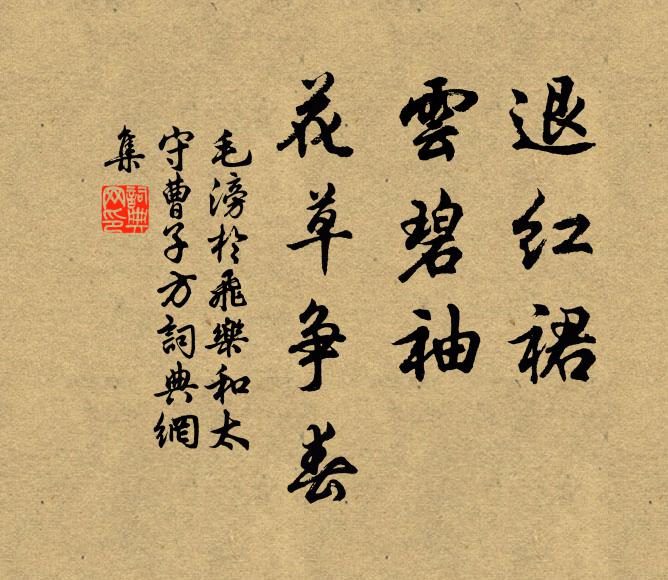 退红裙
雲碧袖
花草争春
毛滂於飛樂和太
守曹子方詞典網
集
詞典网印